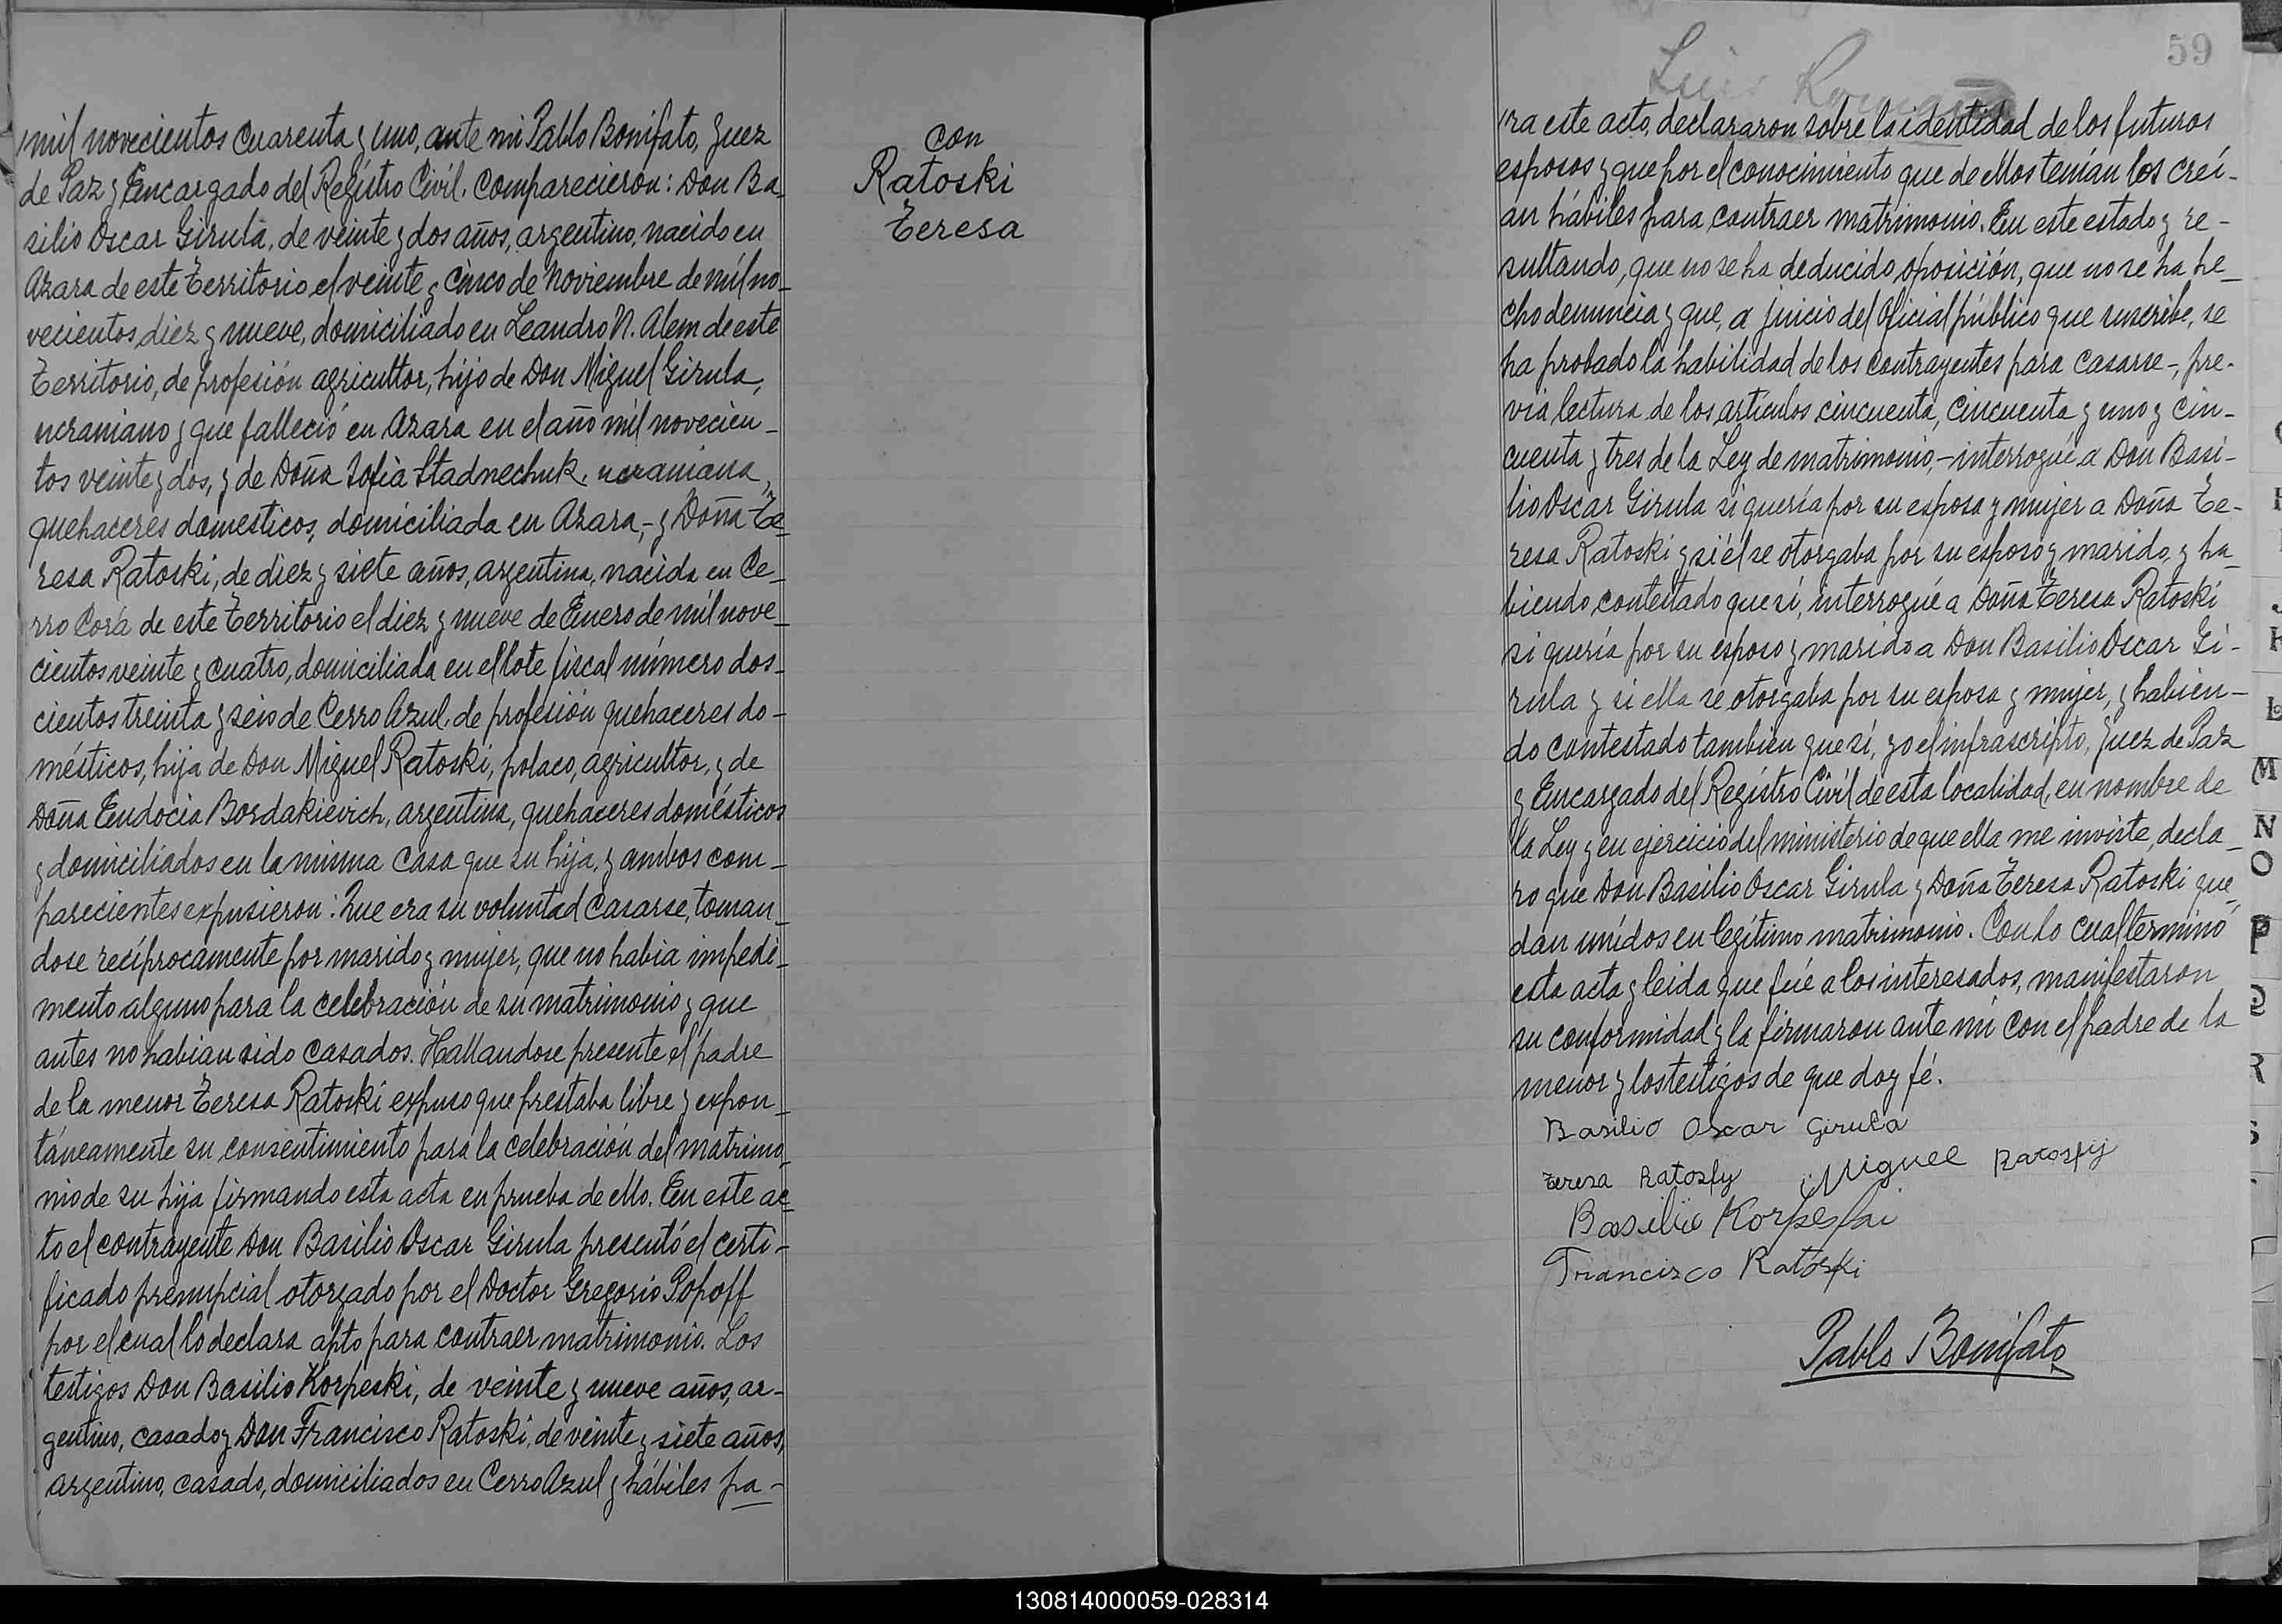 mil novecientos cuarenta y uno, ante mi Pablo Bonifato, Juez
de Paz y Encargado del Registro Civil. Comparecieron: Don Ba_
silio Oscar Girula, de veinte y dos años, argentino, nacido en
Azara de este Territorio el veinte y cinco de Noviembre de mil no_
vecientos diez y nueve, domiciliado en Leandro N. Alem de este
Territorio, de profesión agricultor, hijo de Don Miguel Girula,
ucraniano y que falleció en Azara en el año mil novecien_
tos veinte y dos, y de Doña Sofia Stadnechuk, ucraniana,
quehaceres domesticos, domiciliada en Azara,- y Doña Te_
resa Ratoski, de diez y siete años, argentina, nacida en Ce_
rro Corá de este Territorio el diez y nueve de Enero de mil nove_
cientos veinte y cuatro, domiciliada en el lote fiscal número dos_
cientos treinta y seis de Cerro Azul, de profesión quehaceres do-
mésticos, hija de Don Miguel Ratoski, polaco, agricultor, y de
Doña Eudocia Bordakievich, argentina, quehaceres domésticos
y domiciliados en la misma casa que su hija, y ambos com_
parecientes expusieron: Que era su voluntad casarse, toman_
dose recíprocamente por marido y mujer, que no habia impedi_
mento alguno para la celebración de su matrimonio y que
antes no habian sido casados. Hallandose presente el padre
de la menor Teresa Ratoski expuso que prestaba libre y expon_
táneamente su consentimiento para la celebración del matrimo_
nio de su hija firmando esta acta en prueba de ello. En este ac_
to el contrayente Don Basilio Oscar Girula presentó el certi-
ficado prenupcial otorgado por el Doctor Gregorio Popoff
por el cual lo declara apto para contraer matrimonio. Los
testigos Don Basilio Korpeski, de veinte y nueve años, ar-
gentino, casado y Don Francisco Ratoski, de veinte y siete años,
argentino, casado, domiciliados en Cerro Azul y hábiles pa-
con
Ratoski
Teresa
59
Luis Romano
ra este acto, declararon sobre la identidad de los futuros
esposos y que por el conocimiento que de ellos tenían los creí-
an hábiles para contraer matrimonio. En este estado y re-
sultando, que no se ha deducido oposición, que no se ha he_
cho denuncia y que, a juicio del Oficial público que suscribe, se
ha probado la habilidad de los contrayentes para casarse-, pre-
via lectura de los artículos cincuenta, cincuenta y uno y cin-
cuenta y tres de la Ley de matrimonio,- interrogué a Don Basi-
lio Oscar Girula si quería por su esposa y mujer a Doña Te-
resa Ratoski y si él se otorgaba por su esposo y marido, y ha_
biendo contestado que sí, interrogué a Doña Teresa Ratoski
si quería por su esposo y marido a Don Basilio Oscar Gi-
rula y si ella se otorgaba por su esposa y mujer, y habien-
do contestado tambien que sí, yo el infrascripto, Juez de Paz
y Encargado del Registro Civil de esta localidad, en nombre de
la Ley y en ejercicio del ministerio de que ella me inviste, decla_
ro que Don Basilio Oscar Girula y Doña Teresa Ratoski que_
dan unídos en legítimo matrimonio. Con lo cual terminó
esta acta y leida que fué a los interesados, manifestaron
su conformidad y la firmaron ante mi con el padre de la
menor y los testigos de que doy fé.
Basilio Oscar Girula
Teresa Ratosky Miguel Ratosky
Basilio Korpeski
Francisco Ratóski
Pablo Bonifato
L
M
N
O
P
Q
R
S
130814000059-028314